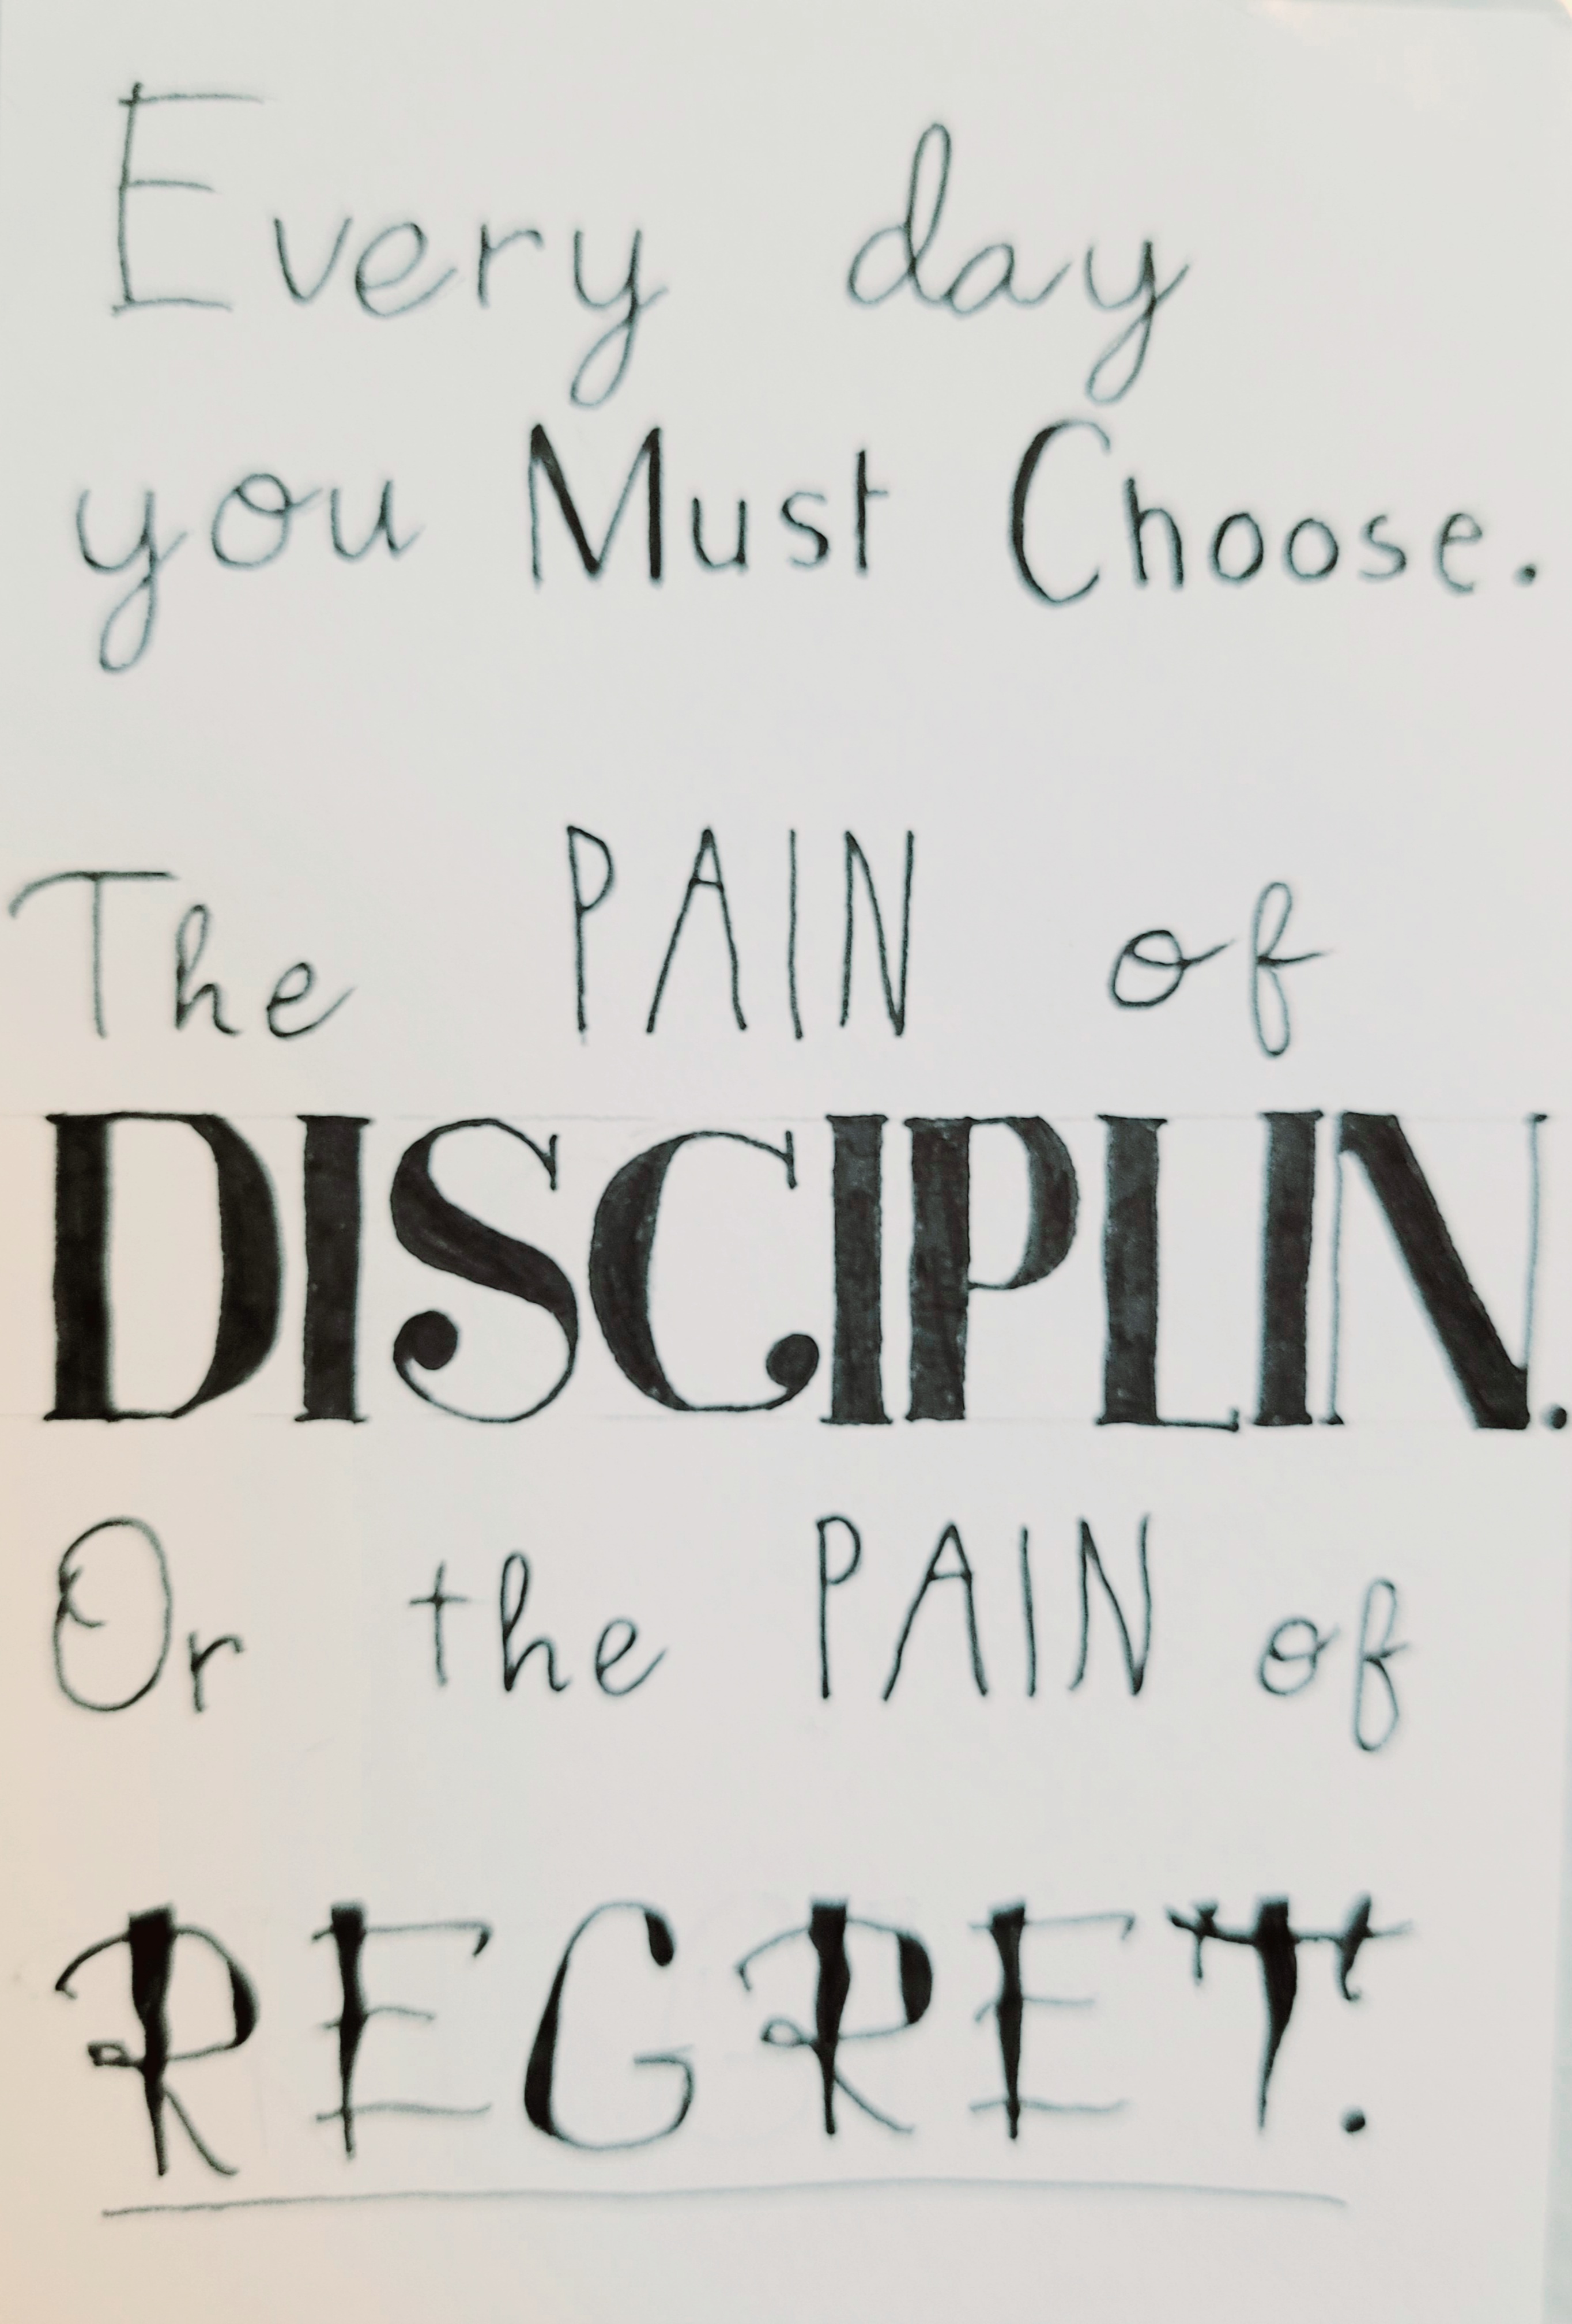 Every day
you Must Choose.
The PAIN of
DISCIPLIN.
Or the PAIN of
REGRET.